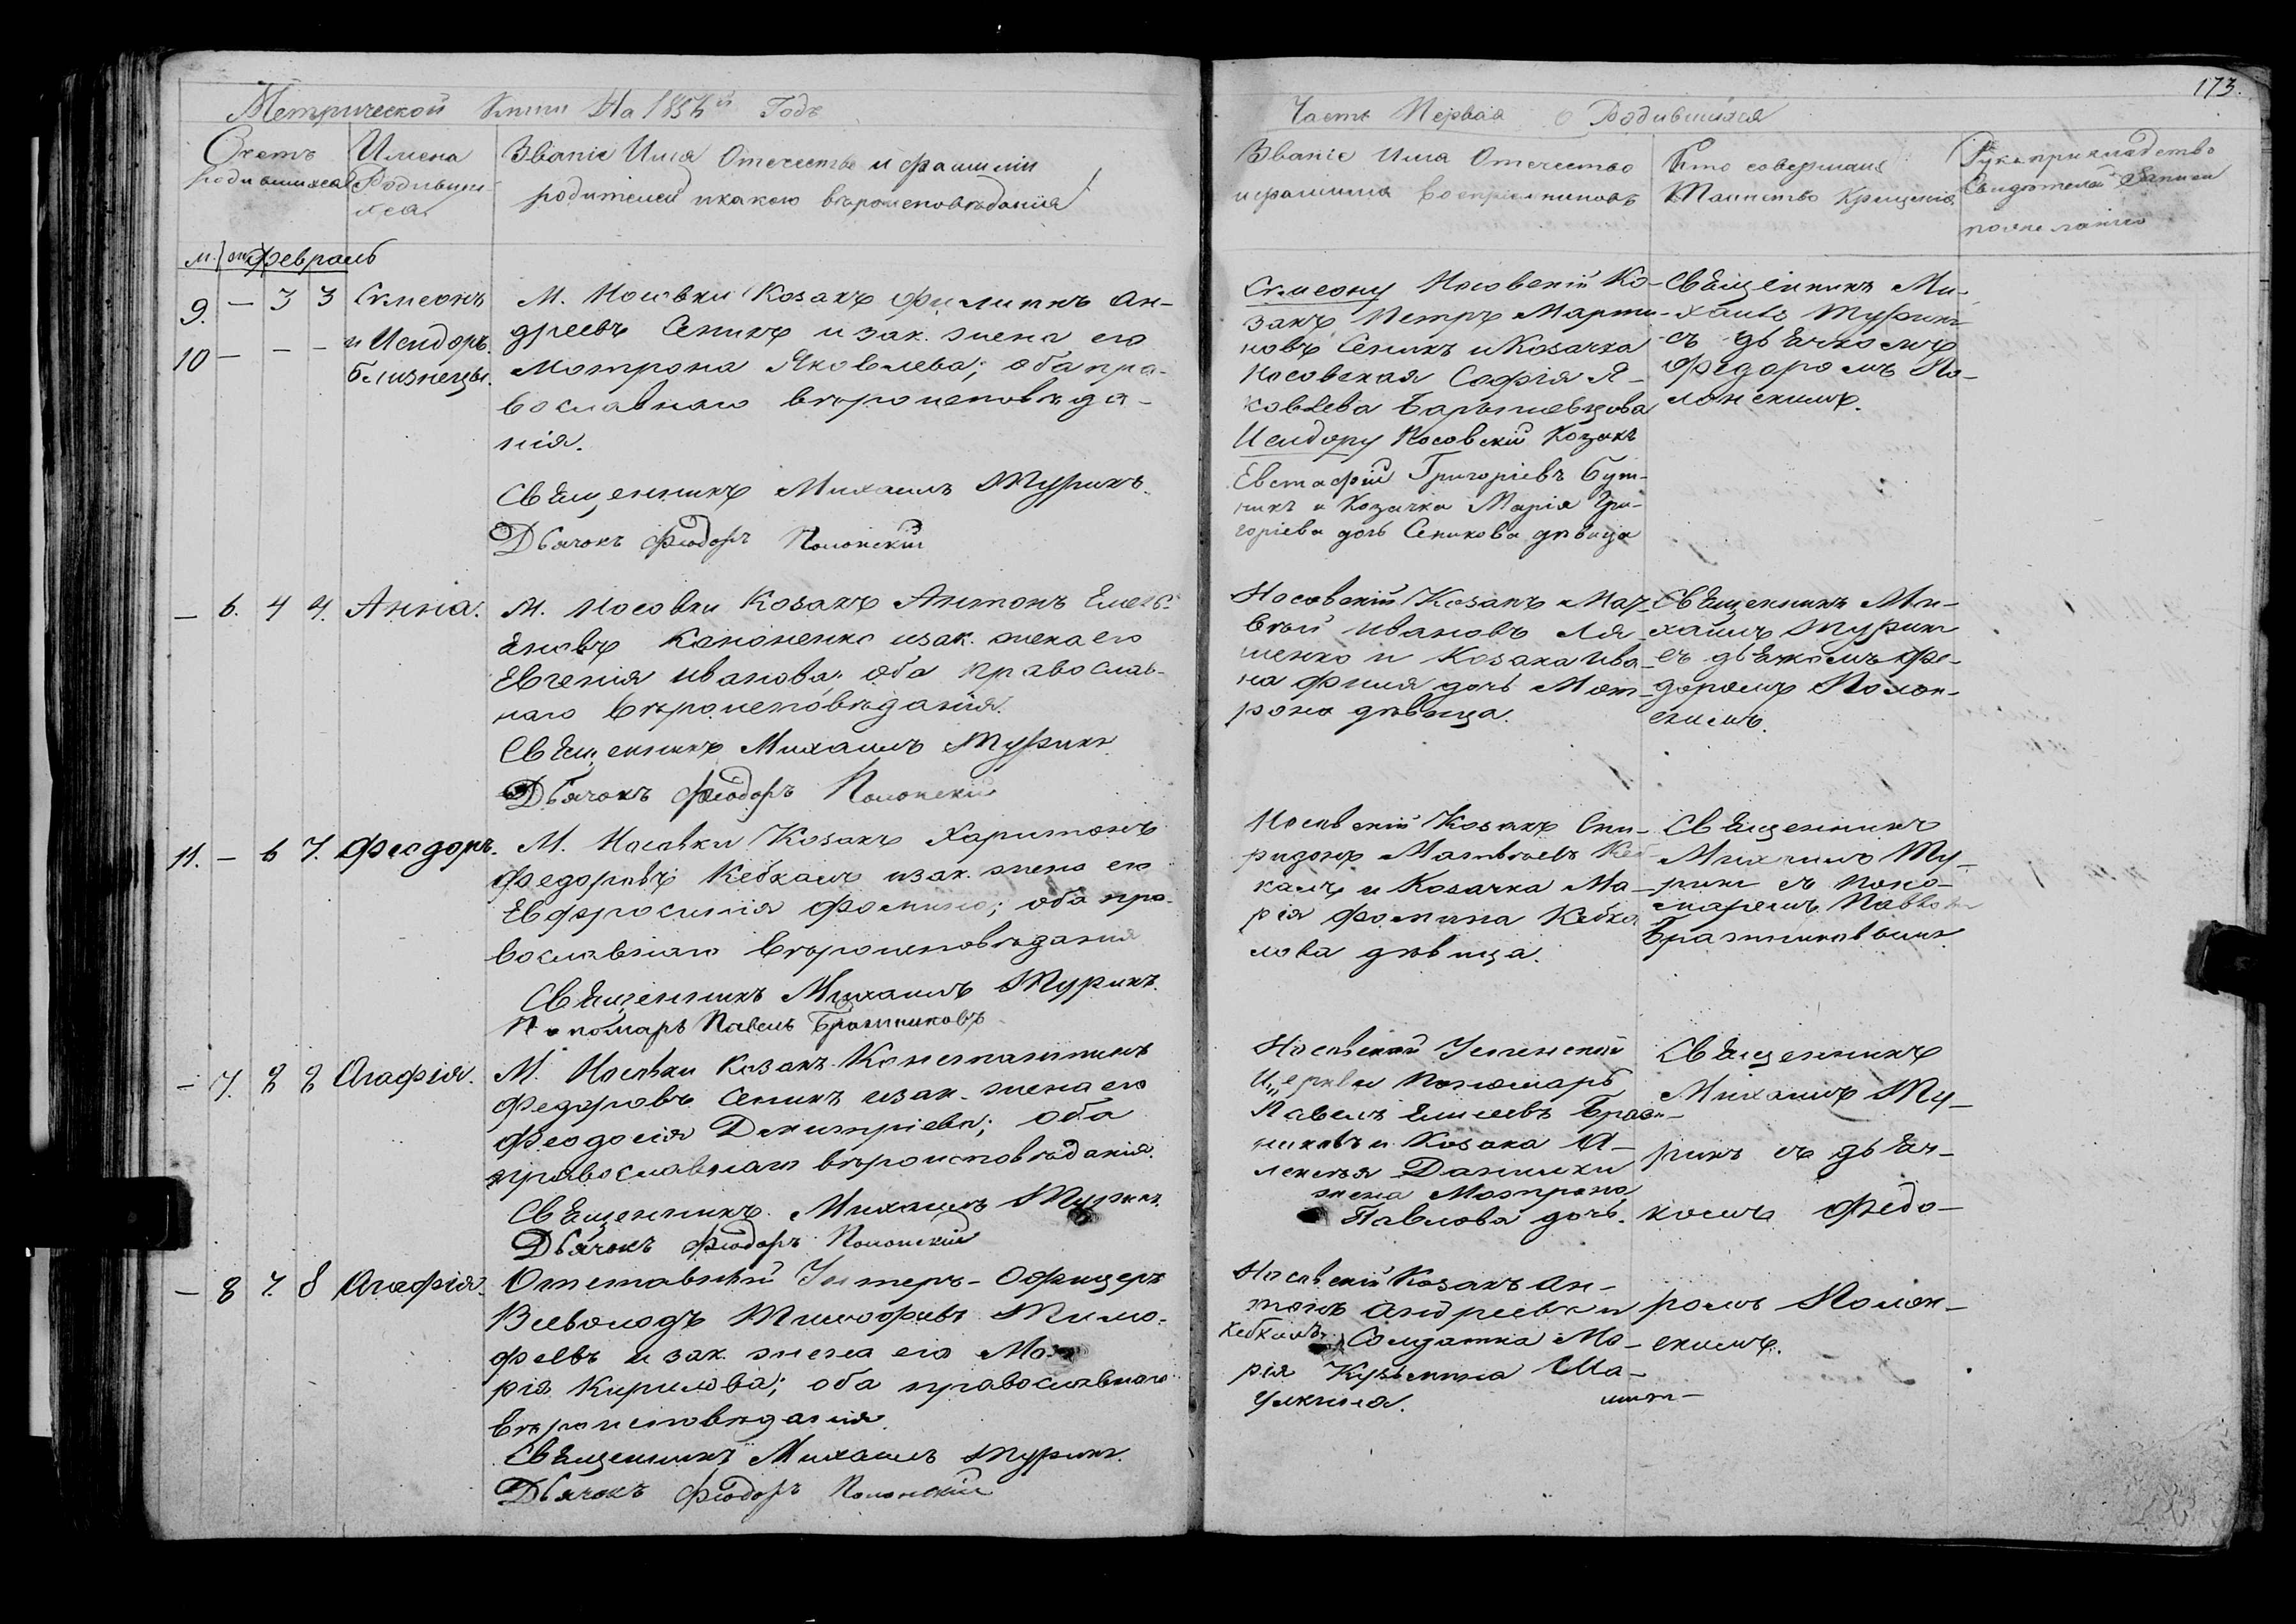 173.
Метрической Книги На 1857й Годъ
Часть Первая о Родившихся
Счетъ родившихся
Имена Родивши-
хся
Званіе Имя Отечество и фамиліи
родителей и какого вѣроисповѣданія
Званіе Имя Отечество
и фамилія воспріемниковъ
Кто совершалъ
Таинство Крещенія
Рукоприкладство
Свидѣтелей Записи
по желанію
м. Февраль
9. — 3 3 Симеонъ
10 — — — и Исидоръ.
близнецы.
М. Носовки Козакъ Филиппъ Ан-
дреевъ Сеникъ и зак. жена его
Мотрона Яковлева; оба пра-
вославнаго вѣроисповѣда-
нія.
Священникъ Михаилъ Турикъ.
Дьячокъ Феодоръ Полонскій
Симеону Носовскій Ко-
закъ Петръ Марти-
новъ Сеникъ и Козачка
Носовская Софія Я-
ковлева Барышевцова
Исидору Носовскій Козакъ
Евстафій Григоріевъ Бут-
никъ и Козачка Марія Гри-
горіева дочь Сеникова дѣвица
Священникъ Ми-
хаилъ Турикъ
съ дьячкомъ
Федоромъ По-
лонскимъ.
— 6. 4 4. Анна.
М. Носовки Козакъ Антонъ Емель-
яновъ Кононенко и зак. жена его
Евгенія Иванова; оба православ-
наго вѣроисповѣданія.
Священникъ Михаилъ Турикъ
Дьячокъ Феодоръ Полонскій
Носовскій Козакъ Мат-
вѣй Ивановъ Ля-
шенко и Козака Ива-
на Филя дочь Мот-
рона дѣвица.
Священникъ Ми-
хаилъ Турикъ
съ дьячкомъ Фе-
доромъ Полон-
скимъ.
11. — 6 7. Феодоръ.
М. Носовки Козакъ Харитонъ
Федоровъ Кебкалъ и зак. жена его
Евфросинія Фомина; оба пра-
вославнаго вѣроисповѣданія
Священникъ Михаилъ Турикъ.
Пономарь Павелъ Бражниковъ
Носовскій Козакъ Спи-
ридонъ Матвѣевъ Кеб
калъ и Козачка Ма-
рія Фомина Кебка
лова дѣвица.
Священникъ
Михаилъ Ту-
рикъ съ поно-
маремъ Павломъ
Бражниковымъ
— 7. 8 8 Агафія.
М. Носовки Козакъ Константинъ
Федоровъ Сеникъ и зак. жена его
Феодосія Димитріева; оба
православнаго вѣроисповѣданія.
Священникъ Михаилъ Турикъ.
Дьячокъ Феодоръ Полонскій
Носовской Успенской
Церкви Пономарь
Павелъ Елисеевъ Браж-
никовъ и Козака А-
лексѣя Данилки
жена Мотрона
Павлова дочь.
Священникъ
Михаилъ Ту-
рикъ съ дьяч-
комъ Федо-
— 8 7. 8 Агафія.
Отставный Унтеръ-Офицеръ
Всеволодъ Тимофѣевъ Тимо-
феевъ и зак. жена его Ма-
рія Кирилова; оба православнаго
вѣроисповѣданія
Священникъ Михаилъ Турикъ.
Дьячокъ Феодоръ Полонскій
Носовскій Козакъ Ан-
тонъ Андреевъ и
Кебкалъ. Солдатка Ма-
рія Кузьмина Ша-
ромъ Полон-
скимъ.